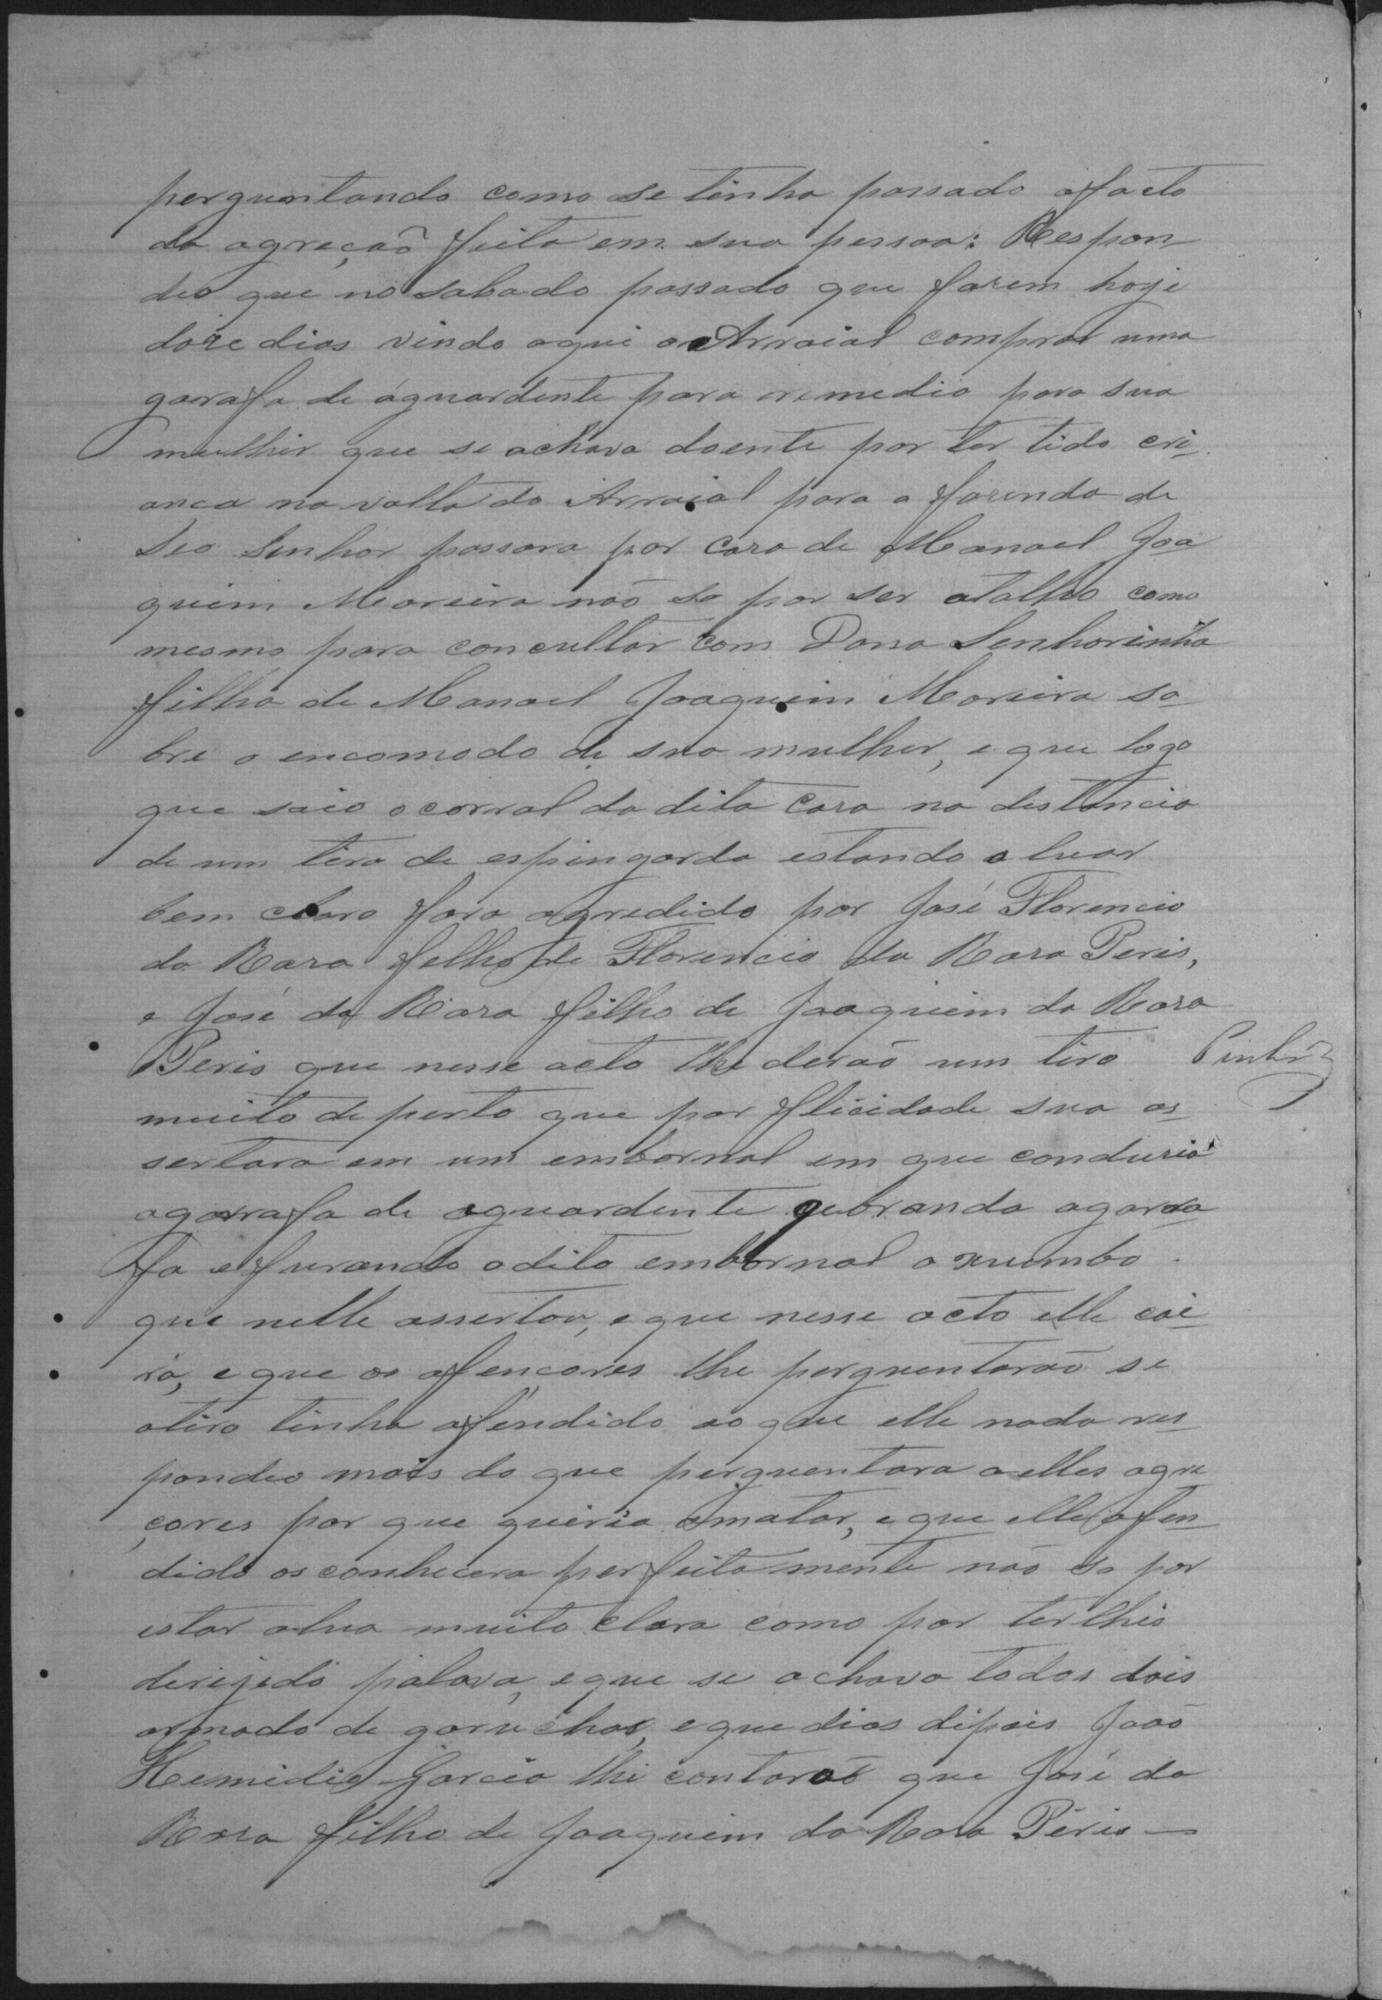 perguntando como se tinha passado o facto
da agreção feita em sua pessoa: Respon
deo que no sabado passado que fazem hoje
doze dias vindo aqui ao Arraial comprar uma
garafa de águardente para remedio para sua
mulher que se achava doente por ter tido cri
ança na volta do Arraial para a fazenda de
Seo Senhor passara por caza de Manoel Joa
quim Moreira não so por ser atalho como
mesmo para concultar com Dona Senhorinha
filha de Manoel Joaquim Moreira so
bre o encomodo de sua mulher, e que logo
que saio o corral da dita caza na distancia
de um tiro de espingarda estando o luar
bem claro fora agredido por José Florencio
da Roza filho de Florencio da Roza Peris,
e José da Roza filho de Joaquim da Roza
Peris que nesse acto lhe derão um tiro
muito de perto que por flicidade sua as
sertara em um embornal em que conduzia
agarrafa de aguardente qebrando agarra
fa e furando o dito embornal o xumbo
que nelle assertou, e que nesse acto elle cai
ra, e que os ofencores lhe perguentarão se
otiro tinha ofendido ao que elle nada res
pondeo mais do que perguentara a elles agre
çores por que queria omatar, e que elle ofen
dido os conhecera perfeitamente não so por
estar alua muito clara como por terlhes
derijedo palava, e que se achava todos dois
armado de garuchas, e que dias dipois João
Hemidio Garcia lhe contarão que José da
Roza filho de Joaquim da Roza Péris